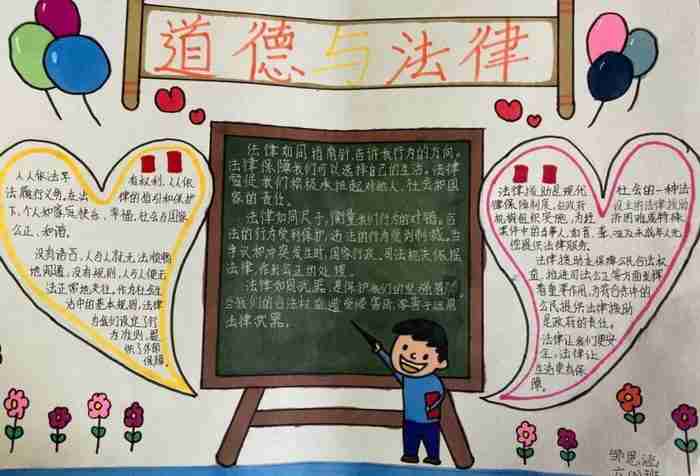 道德与法律
人人依法享有权利,人人依
法履行义务。在法律的指引和保护
下,个人如善良
公正、和谐。
没有语言,人与人就无法顺畅
地沟通,没有规则,人与人便无
法正常地交往。作为社会生
活中的基本规则,法律
为我们设定了行
为准则,提
供了外部
保障。
法律如同指南针,告诉我行为的方向。
法律保障我们可以选择自己的生活。法律
督促我们积极承担起对他人、社会和国
家的责任。
法律如同尺子,衡量我们行为的对错。合
法的行为受到保护,违法的行为受到制裁。当
争议和冲突发生时,国家行政、司法机关依据
法律,作出公正的处理。
法律如同武器,是保护我们的坚强盾
当我们的合法权益遭受侵害时,要善于运用
法律武器。
法律援助是现代社会的一种法
律保障制度,由政府设立的法律援助
机构组织实施,为经济困难或特殊
案件中的当事人
偿提供法律服务。
法律援助主保障公民合法权
益,推进司法公正等方面发挥
着重要作用,为符合条件的
公民提供法律援助
是政府的责任。
法律让我们更安
全,法律让
生活更有保
障。